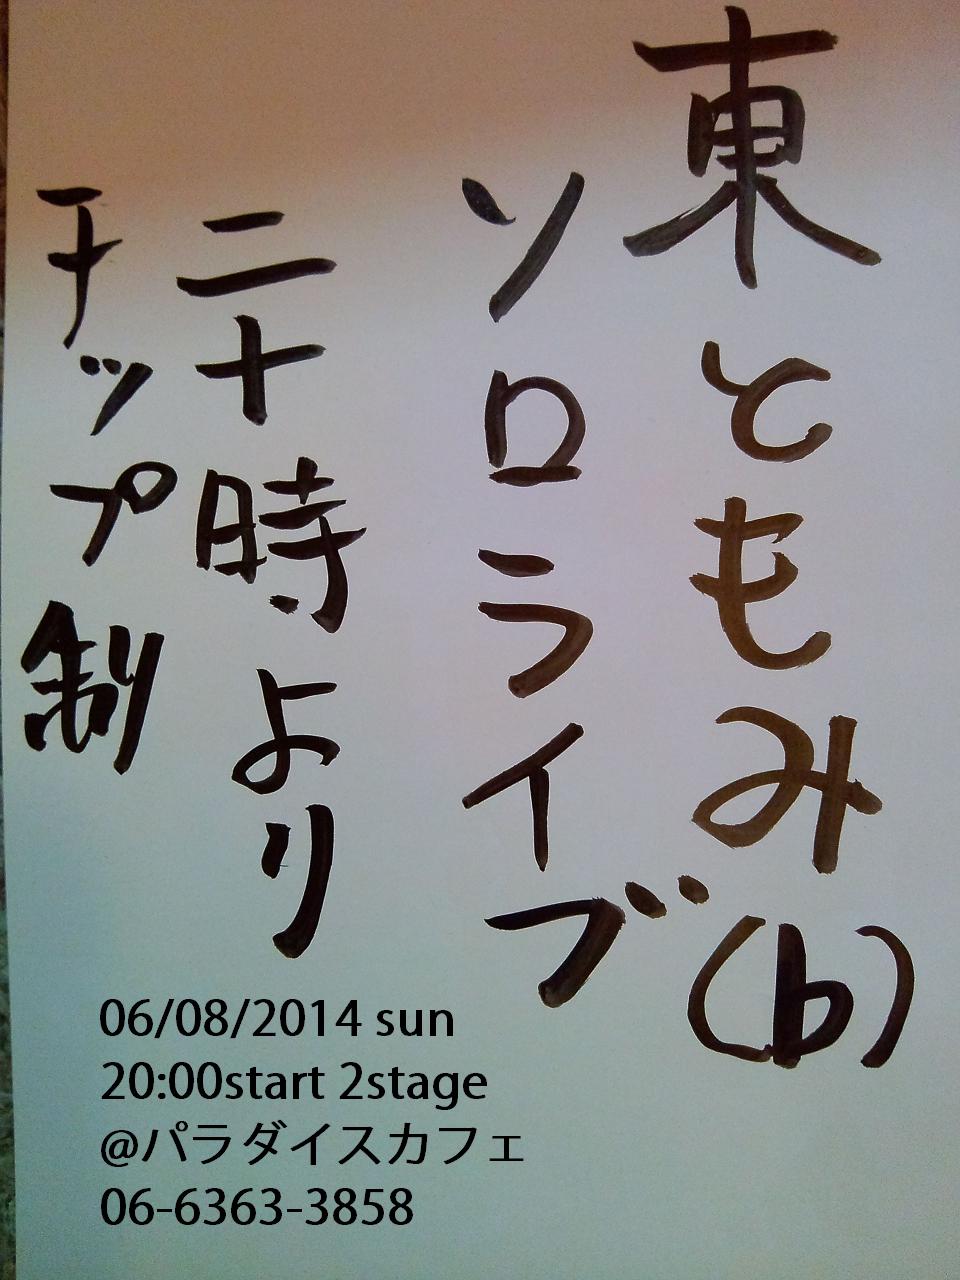 東ともみ(b)
ソロライブ
二十時より
チップ制
06/08/2014 sun
20:00start 2stage
@パラダイスカフェ
06-6363-3858